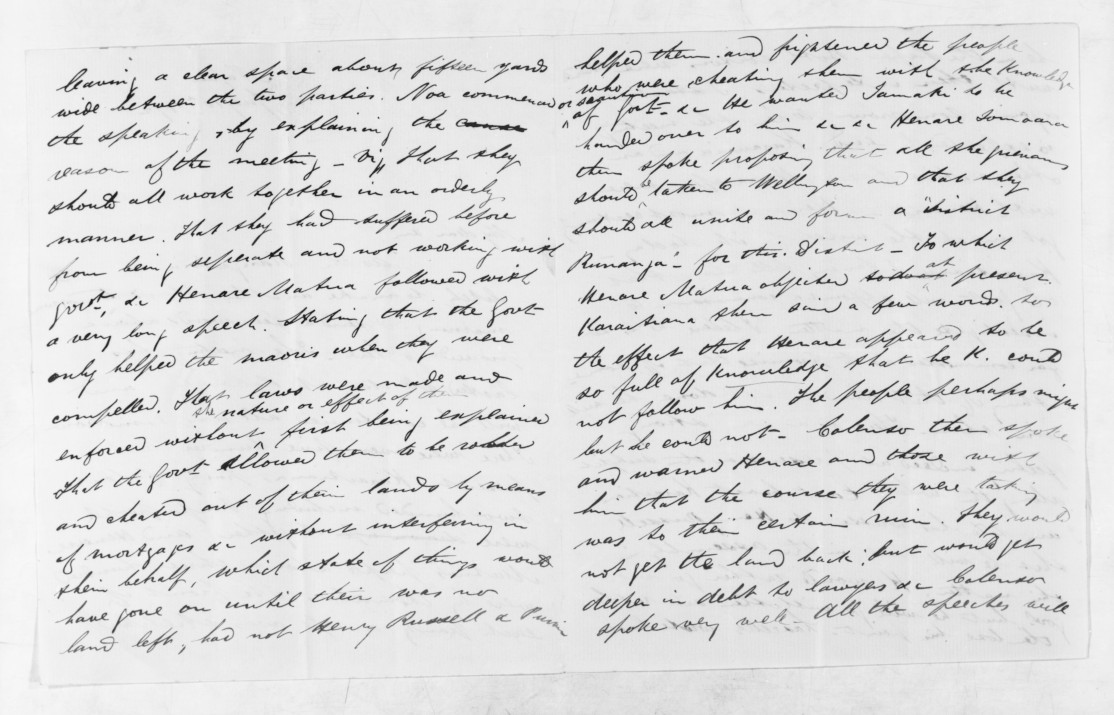 leaving a clear space about fifteen yards
wide between the two parties. Noa commenced
the speaking, by explaining the cause
reason of the meeting - Viz That they
should all work together in an orderly
manner. That they had suffered before
from being seperate and not working with
govt, &c Henare Matua followed with
a very long speech. Stating that the Govt
only helped the maoris when they were
compelled. That laws were made and
the nature or effect of them
enforced without first being explained
That the Govt allowed them to be
and cheated out of their lands by means
of mortgages &c without interfering in
their behalf, which state of things would
have gone on until their was no
land left, had not Henry Russell &
helped them and frightened the people
who were cheating them with the Knowledge
or
of Govt - &c He wanted Tamaki to be
handed over to him &c &c Henare Tomoana
then spoke proposing that all the grievances
should taken to Wellington and that they
should all unite and form a "District
Runanga" - for this District - To which
Henare Matua objected at present.
Karaitiana then said a few words. to
the effect that Henare appeared to be
so full of Knowledge that he K. could
not follow him. The people perhaps might
but he could not - Colenso then spoke
and warned Henare and those with
him that the course they were taking
was to their certain ruin. They would
not get the land back: but would get
deeper in debt to lawyes &c Colenso
spoke very well - All the speeches will